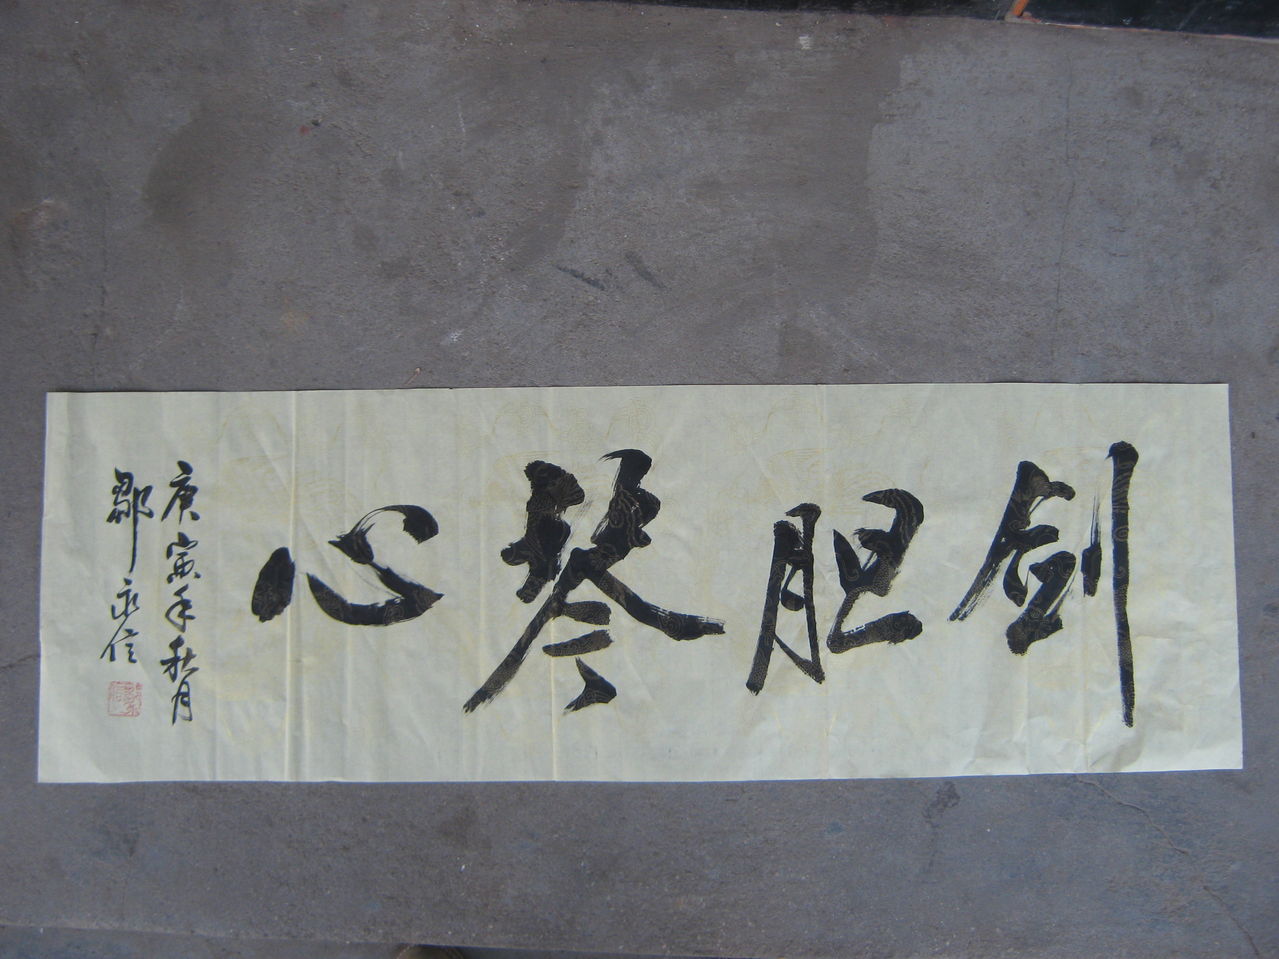 剑胆琴心
庚寅年秋月
邹永信